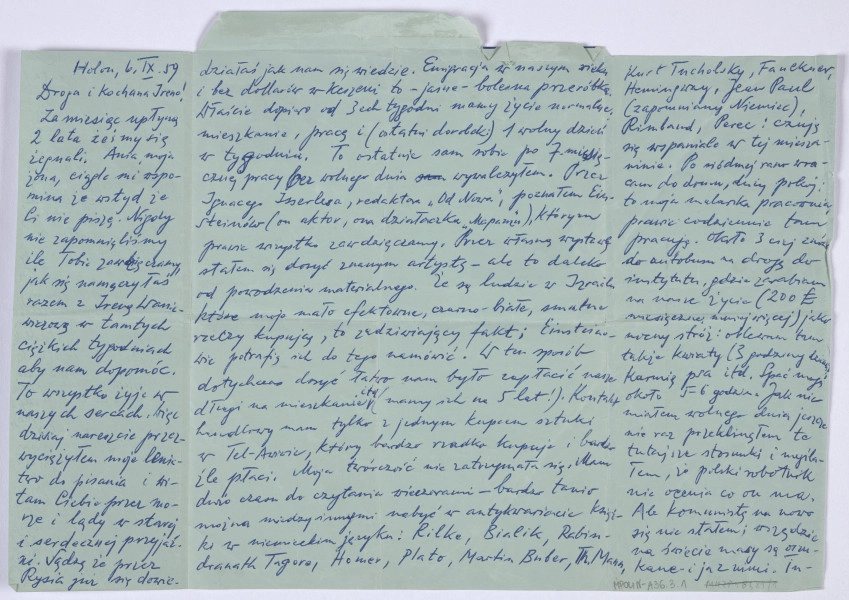 Holon, 6. IX. 59
Droga i kochana Ireno!
Za miesiąc upłyną
2 lata żeśmy się
żegnali. Ania, moja
żona, ciągle mi wspo-
mina że wstyd że
Ci nie piszę. Nigdy
nie zapomnieliśmy
ile Tobie zawdzięczamy,
jak się namęczyłaś
razem z Ireną
w tamtych
ciężkich tygodniach
aby nam dopomóc.
To wszystko żyje w
naszych sercach. Więc
dzisiaj nareszcie przez-
wyciężyłem moje lenis-
two do pisania i wi-
tam Ciebie przez mo-
rze i lądy w starej
i serdecznej przyjaź-
ni. Sądzę że przez
Rysia już się dowie-
działaś jak nam się wiedzie. Emigracja w naszym wieku
i bez dollarów w kieszeni to – jasne – bolesna przeróbka.
Właściwie dopiero od 3ch tygodni mamy życie normalne,
mieszkanie, pracę i (ostatni dorobek) 1 wolny dzień
w tygodniu. To ostatnie sam sobie po 7-miesię-
cznej pracy bez wolnego dnia wywalczyłem. Przez
Ignacego Isserlesa, redaktora „Od Nowa", poznałem Ein-
steinów (on aktor, ona działaczka „Mapamu"), którym
prawie wszystko zawdzięczamy. Przez własną wystawę
stałem się dosyć znanym artystą – ale to daleko
od powodzenia materialnego. Że są ludzie w Izraelu
które moje mało efektowne, czarno-białe, smutne
rzeczy kupują, to zadziwiający fakt; Einsteino-
wie potrafią ich do tego namówić. W ten sposób
dotychczas dosyć łatwo nam było zapłacić nasze
długi na mieszkanie itd. (mamy ich na 5 lat!). Kontakt
handlowy mam tylko z jednym kupcem sztuki
w Tel-Awiwie, który bardzo rzadko kupuje i bardzo
źle płaci. Moja twórczość nie zatrzymała się. Mam
dużo czasu do czytania wieczorami – bardzo tanio
można między innymi nabyć w antykwariacie książ-
ki w niemieckim języku: Rilke, Bialik, Rabin-
dranath Tagore, Homer, Plato, Martin Buber, Th. Mann,
Kurt Tucholsky, Faulkner,
Hemingway, Jean Paul
(zapomniany Niemiec),
Rimbaud, Perec: czują
się wspaniale w tej miesza-
ninie. Po siódmej rano wra-
cam do domu, duży pokój:
to moja malarska pracownia,
prawie codziennie tam
pracuję. Około 3ciej znów
do autobusu na drogę do
instytutu, gdzie zarabiam
na nasze życie (200 £
miesięcznie mniej więcej) jako
nocny stróż: oblewam tam
także kwiaty (3 godziny)
karmię psa itd. Spać mogę
około 5-6 godzin. Jak nie
miałem wolnego dnia jeszcze
nie raz przeklinałem te
tutejsze stosunki i myśla-
łem, że polski robotnik
nie ocenia co on ma.
Ale komunistą na nowo
się nie stałem; wszędzie
na świecie masy są oszu-
kane – i ja z nimi. In-